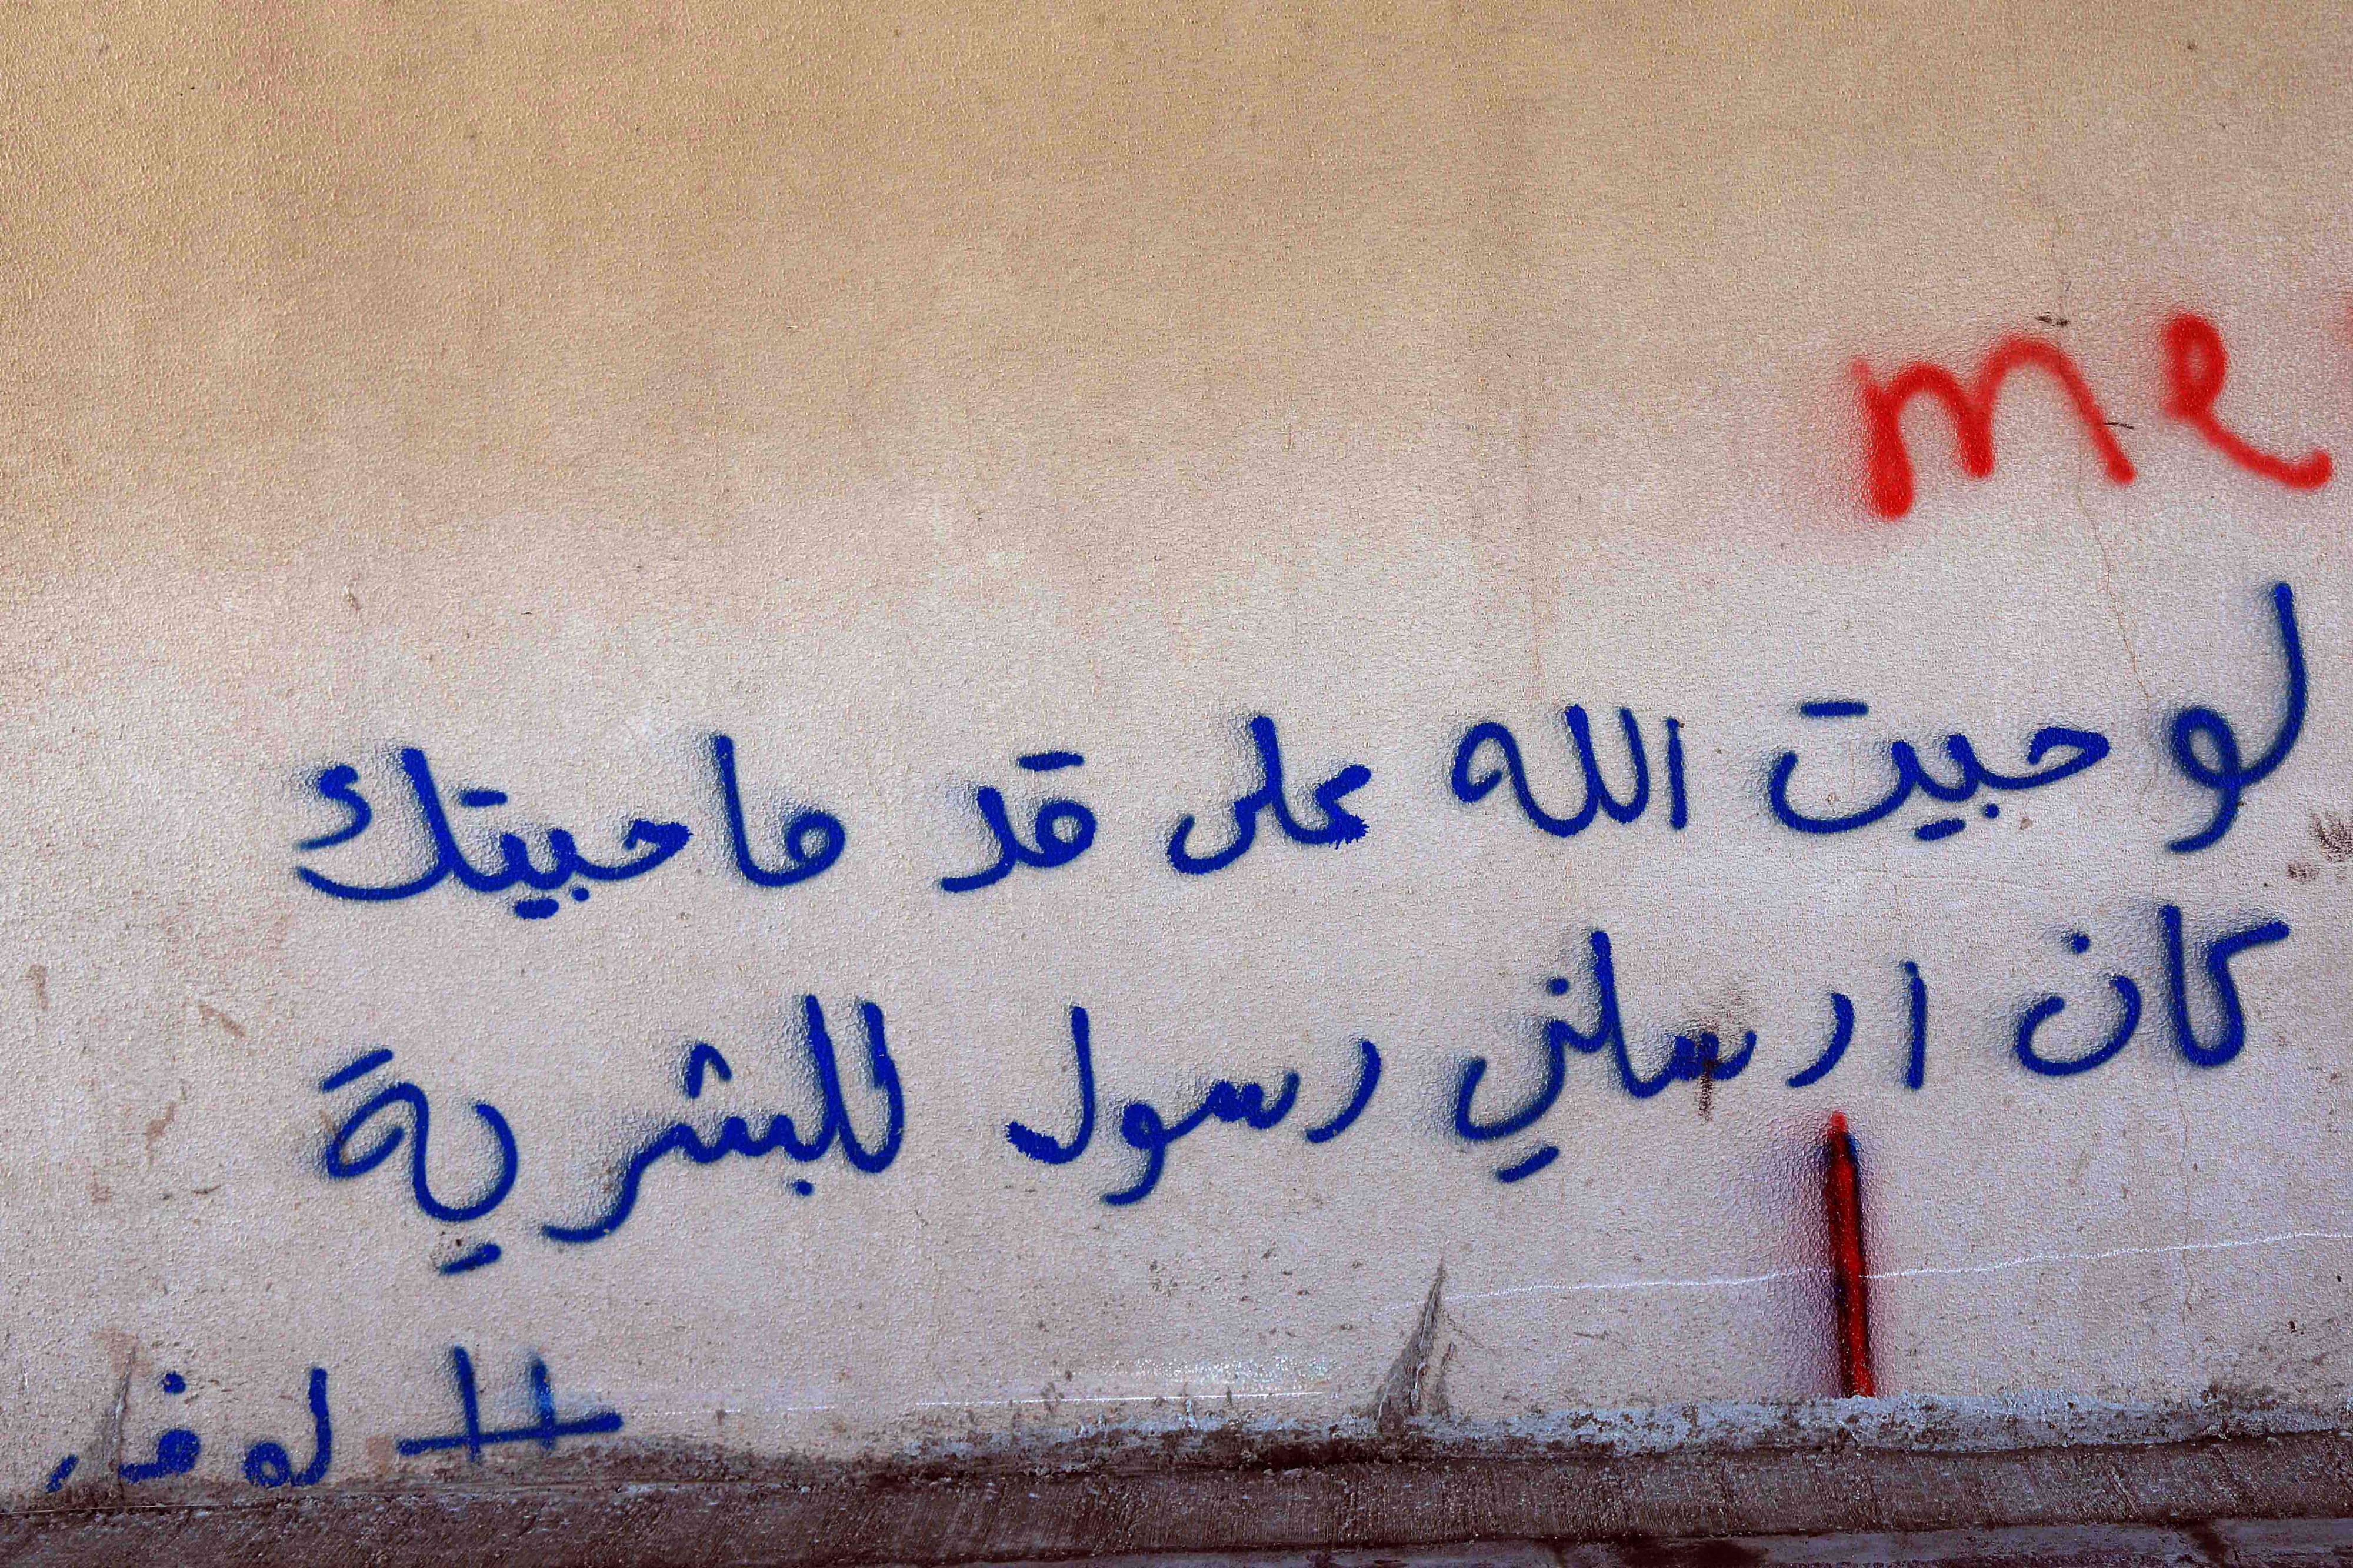 me
لو حبيت الله على قد ما حبيتك
كان ارسلني رسول للبشرية